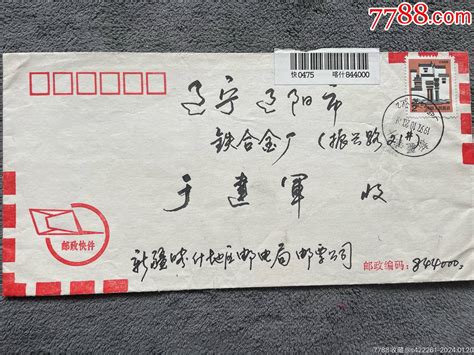 7788.com
快0475 喀什844000
辽宁 辽阳市
铁合金厂（振兴路21#）
于建军 收
邮政快件
新疆喀什地区邮电局邮票公司
邮政编码：844000
7788收藏@s422261-2024.0120